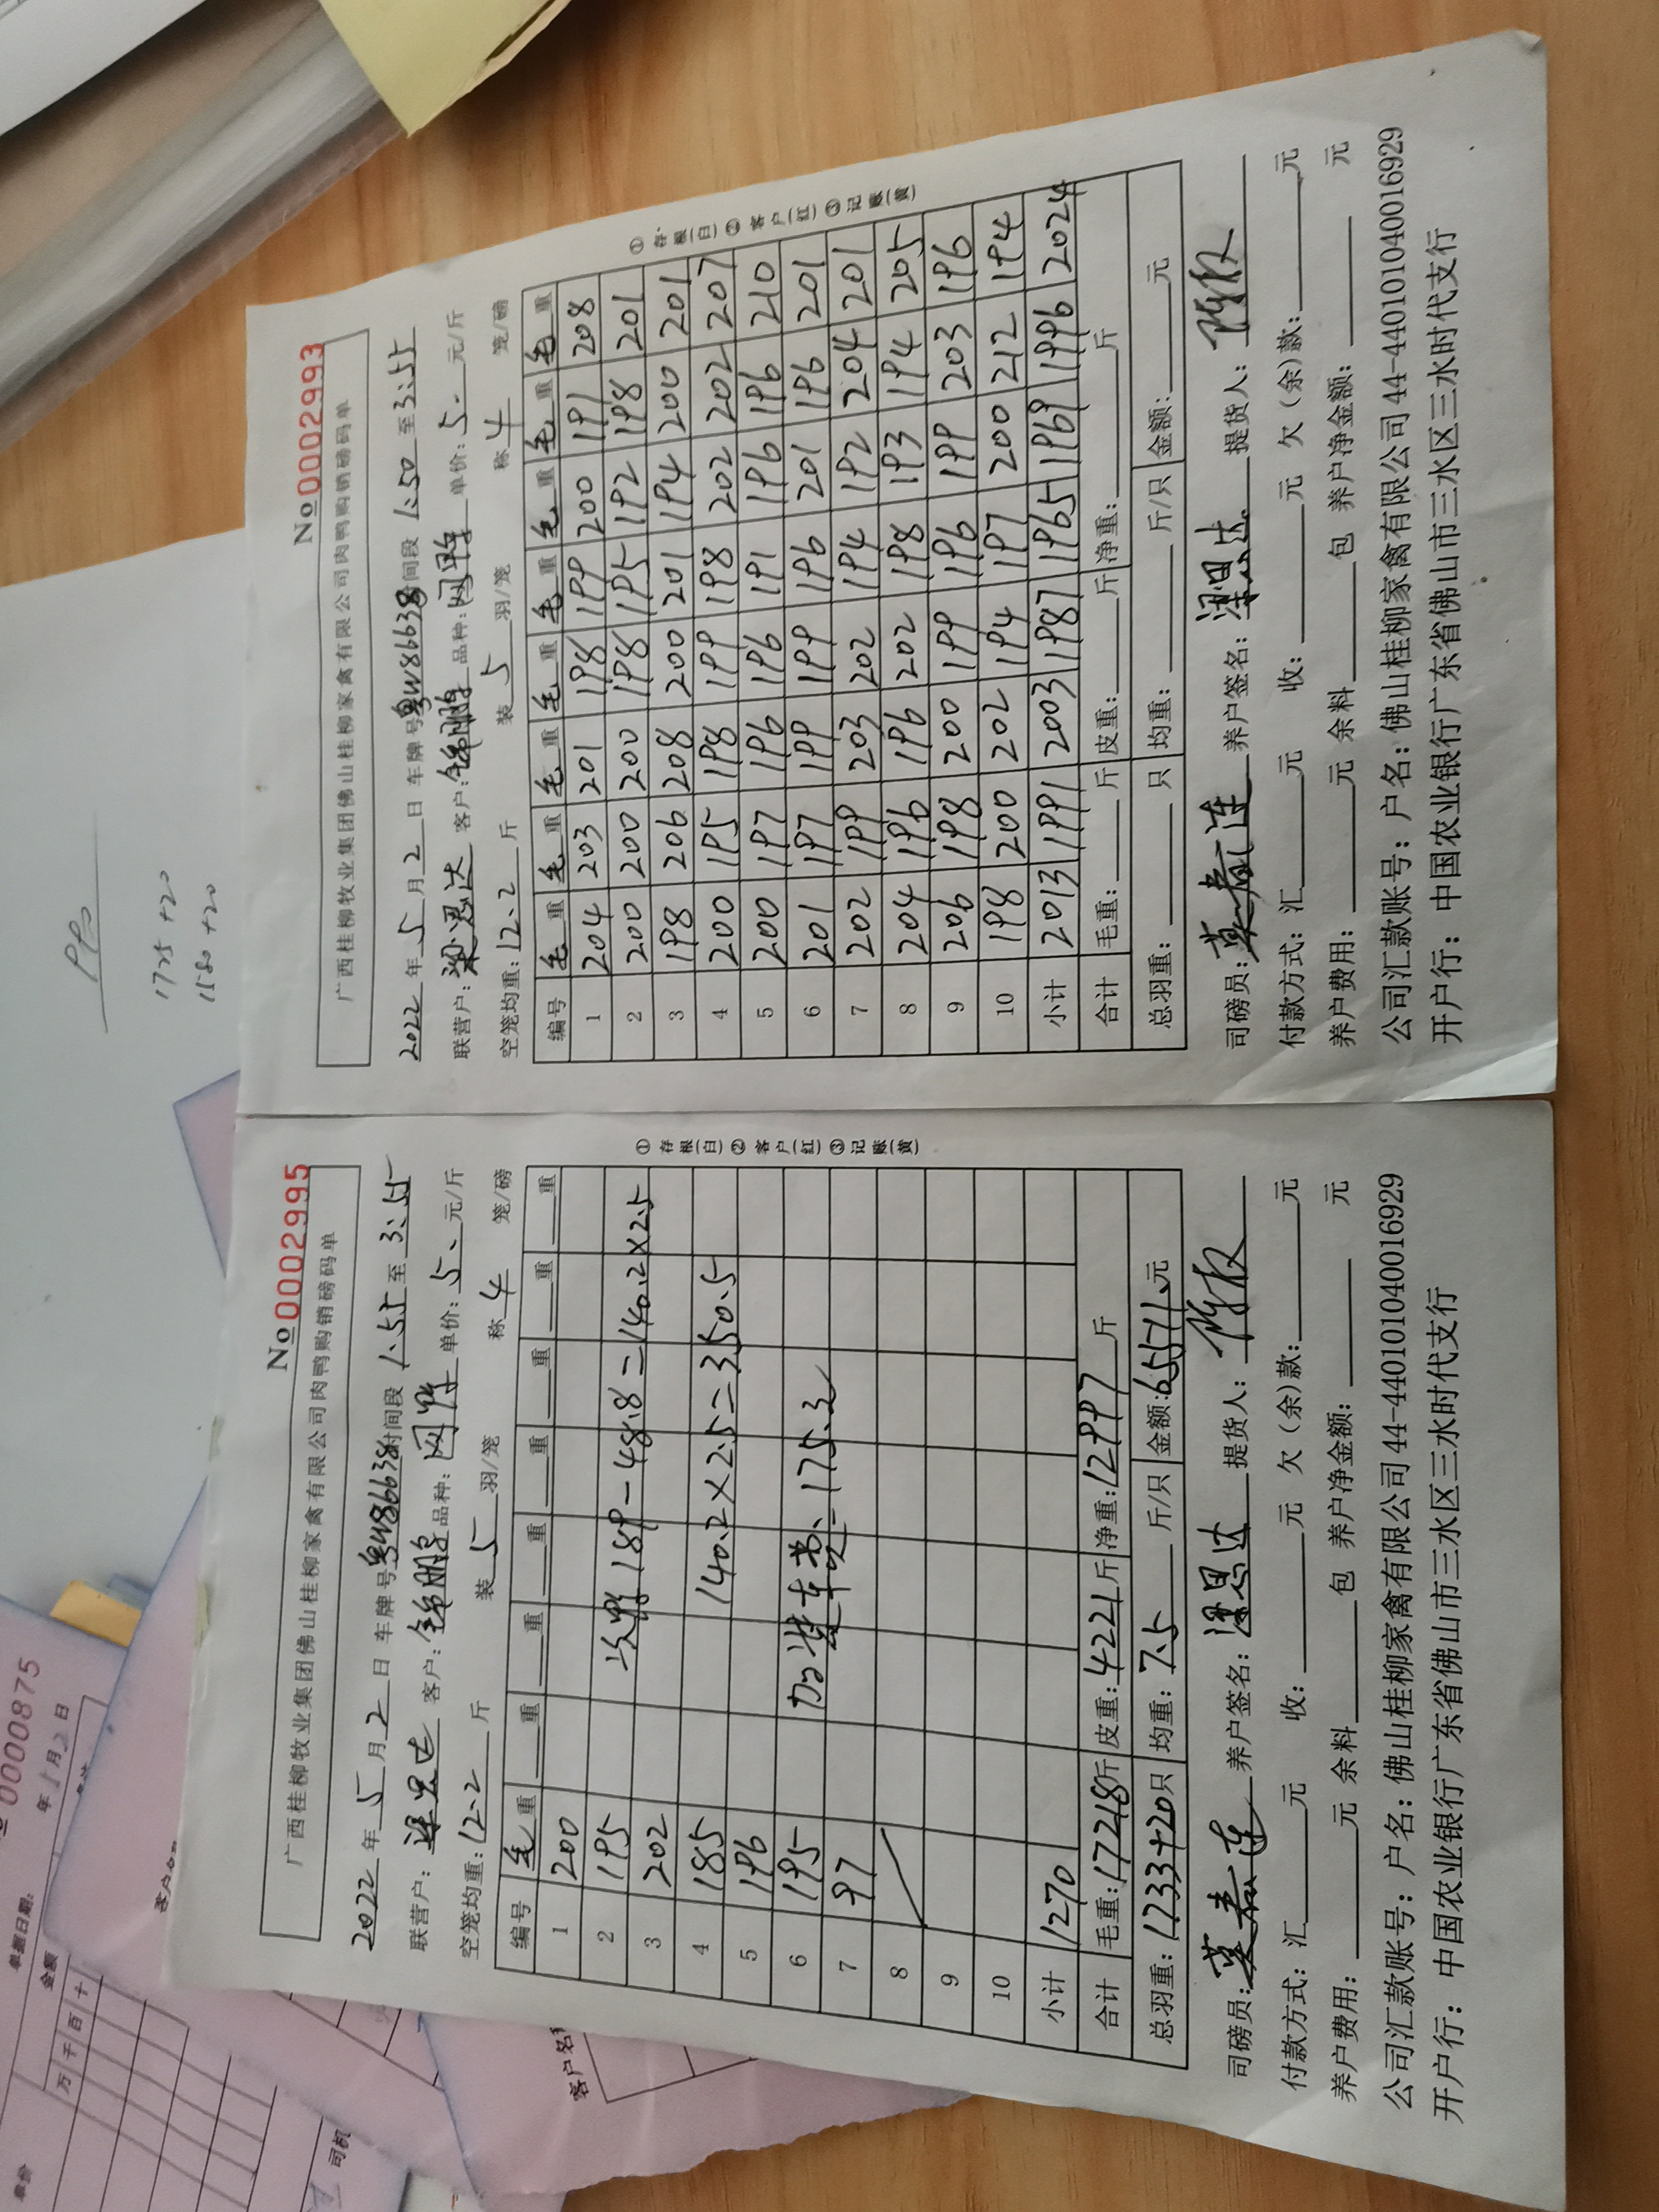 No 0002993
广西桂柳牧业集团佛山桂柳家禽有限公司肉鸭购销磅码单
2022年5月2日 车牌号粤W86638时间段 1:50 至 3:55
联营户:梁恩达 客户:锦鹏 品种:网鸭 单价:5.元/斤
空笼均重:12.2斤 装5羽/笼 称4笼/磅
编号 毛重 毛重 毛重 毛重 毛重 毛重 毛重 毛重
1 204 203 201 198 199 200 191 208
2 200 200 200 198 195 192 198 201
3 198 206 208 200 201 194 200 201
4 200 195 198 199 198 202 202 207
5 200 197 196 196 191 196 196 210
6 201 197 199 199 196 201 196 201
7 202 199 203 202 194 192 204 201
8 204 196 196 202 198 193 194 205
9 206 198 200 199 196 199 203 196
10 198 200 202 194 197 200 212 194
小计 2013 1991 2003 1987 1965 1969 1996 2024
合计 毛重: 斤 皮重: 斤 净重: 斤
总羽重: 只 均重: 斤/只 金额: 元
①存根(白)②客户(红)③记账(黄)
司磅员: 养户签名:梁恩达 提货人:
付款方式:汇 元 收: 元 欠(余)款: 元
养户费用: 元 余料 包 养户净金额: 元
公司汇款账号:户名:佛山桂柳家禽有限公司44-440101040016929
开户行:中国农业银行广东省佛山市三水区三水时代支行
No 0002995
广西桂柳牧业集团佛山桂柳家禽有限公司肉鸭购销磅码单
2022年5月2日 车牌号粤W86638时间段 1:55 至 3:55
联营户:梁恩达 客户:锦鹏 品种:网鸭 单价:5.元/斤
空笼均重:12.2斤 装5羽/笼 称4笼/磅
编号 毛重 重 重 重 重 重 重 重
1 200
2 195 次鸭189-48.8=140.2×2.5
3 202
4 185 140.2×2.5=350.5
5 196
6 195 加装车费:175.3
7 97
8
9
10
小计 1270
合计 毛重:17218斤 皮重:4221斤 净重:12997斤
总羽重:1733+20只 均重:7.5斤/只 金额:65511.元
①存根(白)②客户(红)③记账(黄)
司磅员: 养户签名:梁恩达 提货人:
付款方式:汇 元 收: 元 欠(余)款: 元
养户费用: 元 余料 包 养户净金额: 元
公司汇款账号:户名:佛山桂柳家禽有限公司44-440101040016929
开户行:中国农业银行广东省佛山市三水区三水时代支行
1725+20
1580+20
0000875
年5月2日
单据日期:
金额
万千百十
单价
客户名
司机